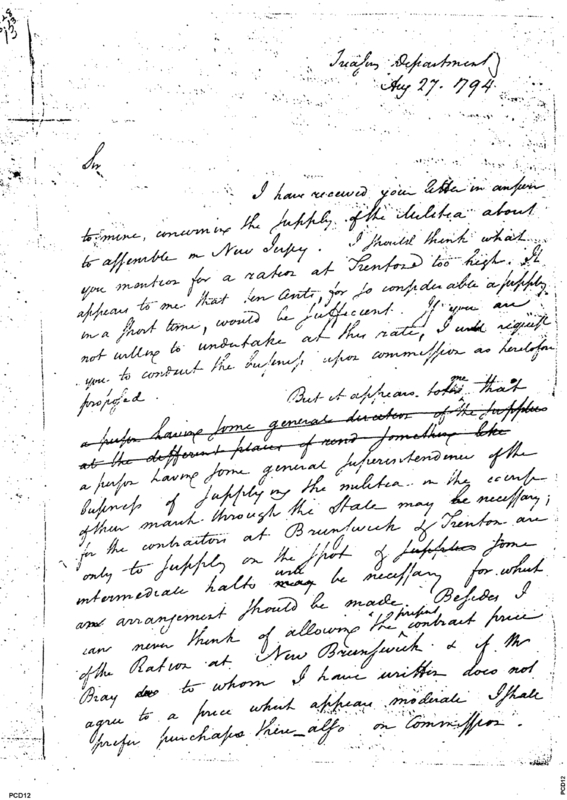 Treasy Department
Aug 27. 1794
Sir
I have received your letter in answer
to mine, concerning the supply of the Militia about
to assemble in New Jersey. I should think what
you mention for a ration at Trenton too high. It
appears to me that ten Cents, for so considerable a supply
in a short time, would be sufficient. If you are
not willing to undertake at this rate, I will request
you to conduct the business upon commission as heretofore
proposed. But it appears to me that
a person having some general direction of the supplies
at the different places of rend something like
a person having some general superintendence of the
business of supplying the militia in the course
of their march through the State may be necessary;
for the contractors at Brunswick & Trenton are
only to supply on the spot & supplies some
intermediate halts may will be necessary for which
an arrangement should be made. Besides I
can never think of allowing the present contract price
of the Ration at New Brunswick & if Mr
Bray to whom I have written does not
agree to a price which appears moderate I shall
prefer purchases there also on Commission.
PCD12
PCD12